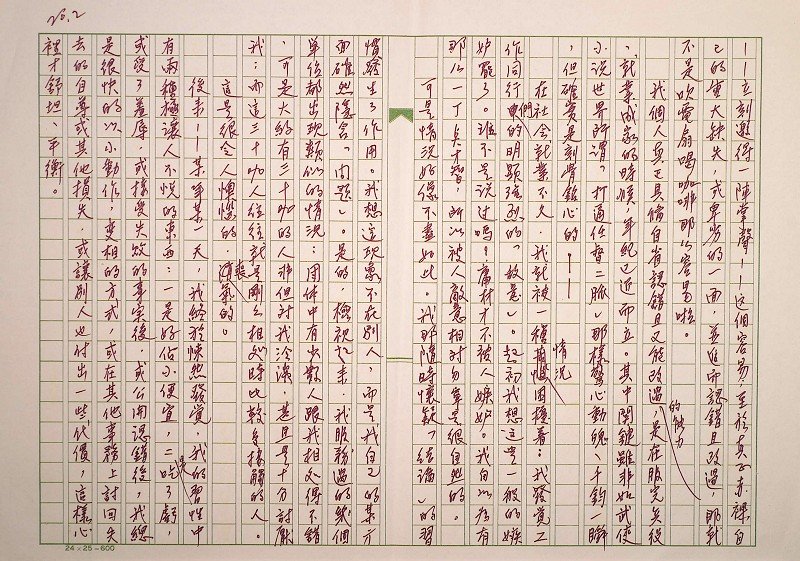 20.2
──立刻激得一陣掌聲──这個容易;至於真正赤裸自
己的重大缺失,或卑劣的一面,並進而認錯且改過,那就
不是吹電扇喝咖啡那么容易啦。
我個人真正具備自省認錯且又能改過的能力,是在服完兵役
、就業成家的時候,年紀已近而立。其中関鍵雖非如武俠
小說世界所謂「打通任督二脈」那樣驚心動魄、千鈞一瞬
,但確實是刻骨銘心的──
在社会就業不久,我就被一種情況困擾著:我發覺工
作同行們的明顯強烈的「敌意」。起初我想這是一般的嫉
妒罷了。誰不是說过嗎?庸材才不被人嫉妒。我自以為有
那么一丁点才智,所以被人敵意相对勿寧是很自然的。
可是情況好像不盡如此。我那隨時懷疑「結論」的習
慣發生了作用。我想這現象不在別人,而是我自己的某方
面確然隱含「問題」。是的,檢視起來,我服務過的幾個
單位都出現類似的情況:团体中有少數人跟我相处得不錯
,可是大約有三十%的人非但对我冷淡,甚且是十分討厭
我;而這三十%人往往就是剛剛相处時比較多接觸的人。
這是很令人懊惱的、喪氣的。
後來──某年某一天,我終於悚然發覺,我的習性中
有兩種極讓人不悅的東西:一是好佔小便宜,二是吃了虧,
或受了羞辱,或樣受失敗的事実後,或公開認錯後,我總
是很快的以小動作,变相的方式,或在其他事務上討回失
去的自尊或其他損失,或讓別人也付出一些代價,這樣心
裡才舒坦、平衡。
24×25=600